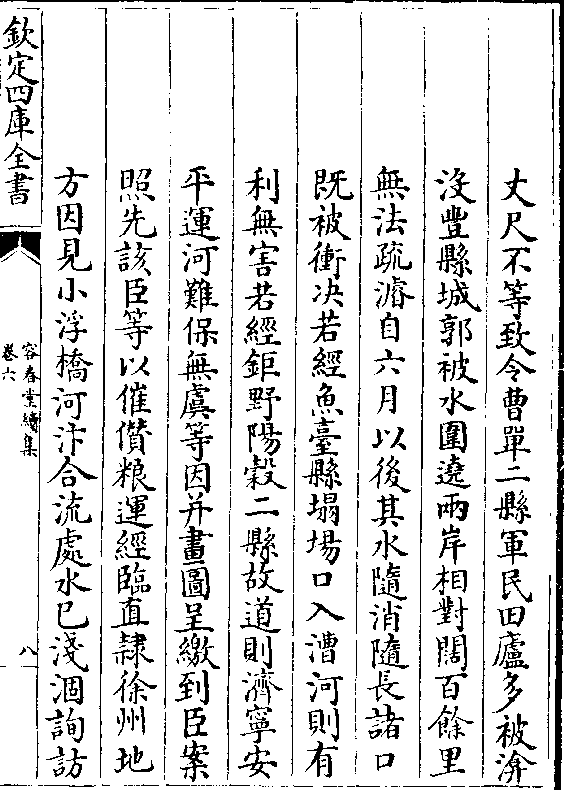 丈尺不等致令曹單二縣軍民田廬多被渰
沒豐縣城郭被水圍遶兩岸相對闊百餘里
無法疏濬自六月以後其水隨消隨長諸口
既被衝决若經魚臺縣塌場口入漕河則有
利無害若經鉅野陽穀二縣故道則濟寧安
平運河難保無虞等因并畫圖呈繳到臣案
照先該臣等以催儧粮運經臨直隷徐州地
方因見小浮橋河汴合流處水已淺涸詢訪
欽定四庫全書
容春堂續集
卷六
八